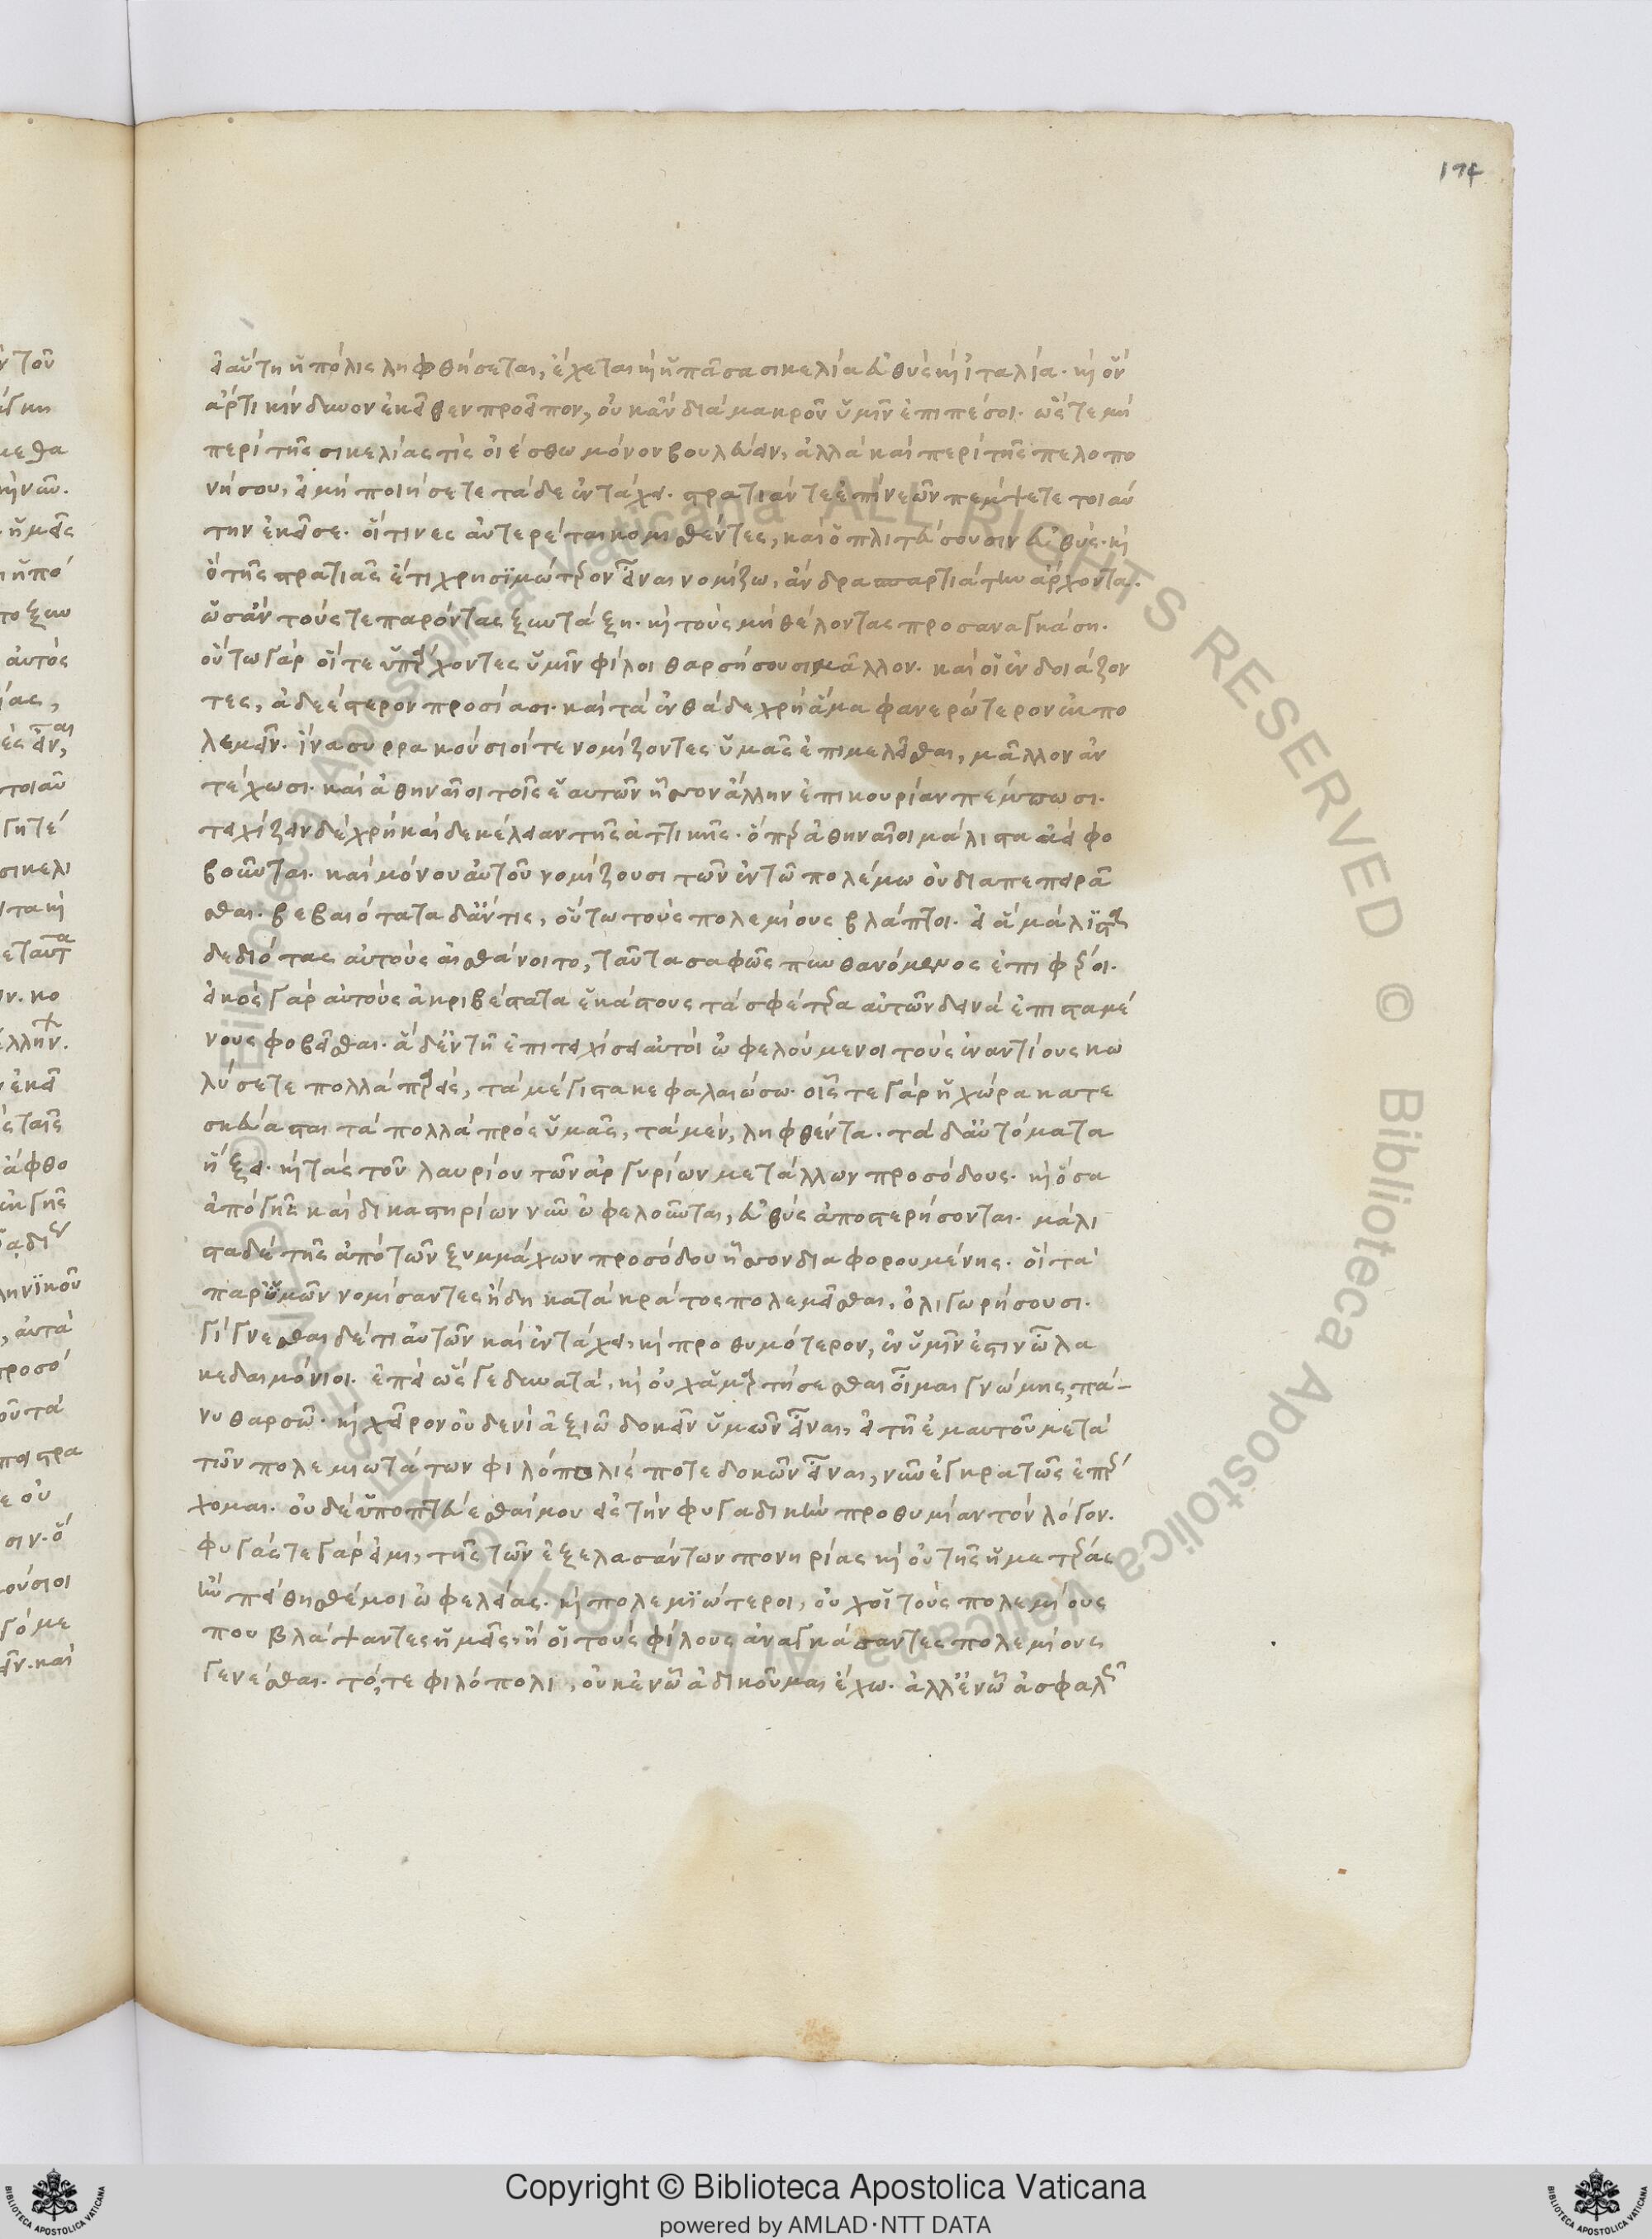 194
εἰ αὕτη ἡ πόλις ληφθήσεται, ἔχεται καὶ ἡ πᾶσα σικελία εὐθὺς καὶ ἰταλία. καὶ ὃν
ἄρτι κίνδυνον ἐκεῖθεν προεῖπον, οὐκ ἂν διὰ μακροῦ ὑμῖν ἐπιπέσοι. ὥστε μὴ
περὶ τῆς σικελίας τις οἰέσθω μόνον βουλεύειν, ἀλλὰ καὶ περὶ τῆς πελοπο
νήσου, εἰ μὴ ποιήσετε τάδε ἐν τάχει. στρατιάν τε ἐπὶ νεῶν πέμψετε τοιαύ
την ἐκεῖσε. οἵτινες αὐτερέται κομισθέντες, καὶ ὁπλιτεύσουσιν εὐθύς. καὶ
ὃ τῆς στρατιᾶς ἔτι χρησιμώτερον εἶναι νομίζω, ἄνδρα σπαρτιάτην ἄρχοντα.
ὡς ἂν τούς τε παρόντας ξυντάξῃ. καὶ τοὺς μὴ θέλοντας προσαναγκάσῃ.
οὕτω γὰρ οἵ τε ὑπάρχοντες ὑμῖν φίλοι θαρσήσουσι μᾶλλον. καὶ οἱ ἐνδοιάζον
τες, ἀδεέστερον προσίασι. καὶ τὰ ἐνθάδε χρὴ ἅμα φανερώτερον ἐκπο
λεμεῖν. ἵνα συρρακούσιοί τε νομίζοντες ὑμᾶς ἐπιμελεῖσθαι, μᾶλλον ἀν
τέχωσι. καὶ ἀθηναῖοι τοῖς ἑαυτῶν ἧσσον ἄλλην ἐπικουρίαν πέμπωσι.
τειχίζειν δὲ χρὴ καὶ δεκέλειαν τῆς ἀττικῆς. ὅπερ ἀθηναῖοι μάλιστα αἰεὶ φο
βοῦνται. καὶ μόνου αὐτοῦ νομίζουσι τῶν ἐν τῶ πολέμω οὐ διαπεπειρᾶ
σθαι. βεβαιότατα δ' ἄν τις, οὕτω τοὺς πολεμίους βλάπτοι. εἰ ἃ μάλιστα
δεδιότας αὐτοὺς αἰσθάνοιτο, ταῦτα σαφῶς πυνθανόμενος ἐπιφέροι.
εἰκὸς γὰρ αὐτοὺς ἀκριβέστατα ἑκάστους τὰ σφέτερα αὐτῶν δεινὰ ἐπισταμέ
νους φοβεῖσθαι. ἃ δ' ἐν τῆ ἐπιτειχίσει αὐτοὶ ὠφελούμενοι τοὺς ἐναντίους κω
λύσετε πολλὰ παρεὶς, τὰ μέγιστα κεφαλαιώσω. οἷς τε γὰρ ἡ χώρα κατε
σκεύασται τὰ πολλὰ πρὸς ὑμᾶς, τὰ μὲν, ληφθέντα. τὰ δ' αὐτόματα
ἥξει. καὶ τὰς τοῦ λαυρίου τῶν ἀργυρίων μετάλλων προσόδους. καὶ ὅσα
ἀπὸ γῆς καὶ δικαστηρίων νῦν ὠφελοῦνται, εὐθὺς ἀποστερήσονται. μάλι
στα δὲ τῆς ἀπὸ τῶν ξυμμάχων προσόδου ἧσσον διαφορουμένης. οἳ τὰ
παρ' ὑμῶν νομίσαντες ἤδη κατὰ κράτος πολεμεῖσθαι, ὀλιγωρήσουσι.
γίγνεσθαι δέ τι αὐτῶν καὶ ἐν τάχει, καὶ προθυμότερον, ἐν ὑμῖν ἐστὶν ὦ λα
κεδαιμόνιοι. ἐπεὶ ὥς γε δυνατά, καὶ οὐχ ἁμαρτήσεσθαι οἶμαι γνώμης, πά-
νυ θαρσῶ. καὶ χεῖρον οὐδενὶ ἀξιῶ δοκεῖν ὑμῶν εἶναι, εἰ τῆ ἐμαυτοῦ μετὰ
τῶν πολεμιωτάτων φιλόπολίς ποτε δοκῶν εἶναι, νῦν ἐγκρατῶς ἐπέρ
χομαι. οὐδὲ ὑποπτεύεσθαί μου ἐς τὴν φυγαδικὴν προθυμίαν τὸν λόγον.
φυγάς τε γάρ εἰμι, τῆς τῶν ἐξελασάντων πονηρίας καὶ οὐ τῆς ὑμετέρας
ἢν πείθησθέ μοι ὠφελείας. καὶ πολεμιώτεροι, οὐχ οἱ τοὺς πολεμίους
που βλάψαντες ὑμεῖς, ἢ οἱ τοὺς φίλους ἀναγκάσαντες πολεμίους
γενέσθαι. τό, τε φιλόπολι, οὐκ ἐν ὧ ἀδικοῦμαι ἔχω. ἀλλ' ἐν ὧ ἀσφαλῶς
Copyright © Biblioteca Apostolica Vaticana
powered by AMLAD·NTT DATA